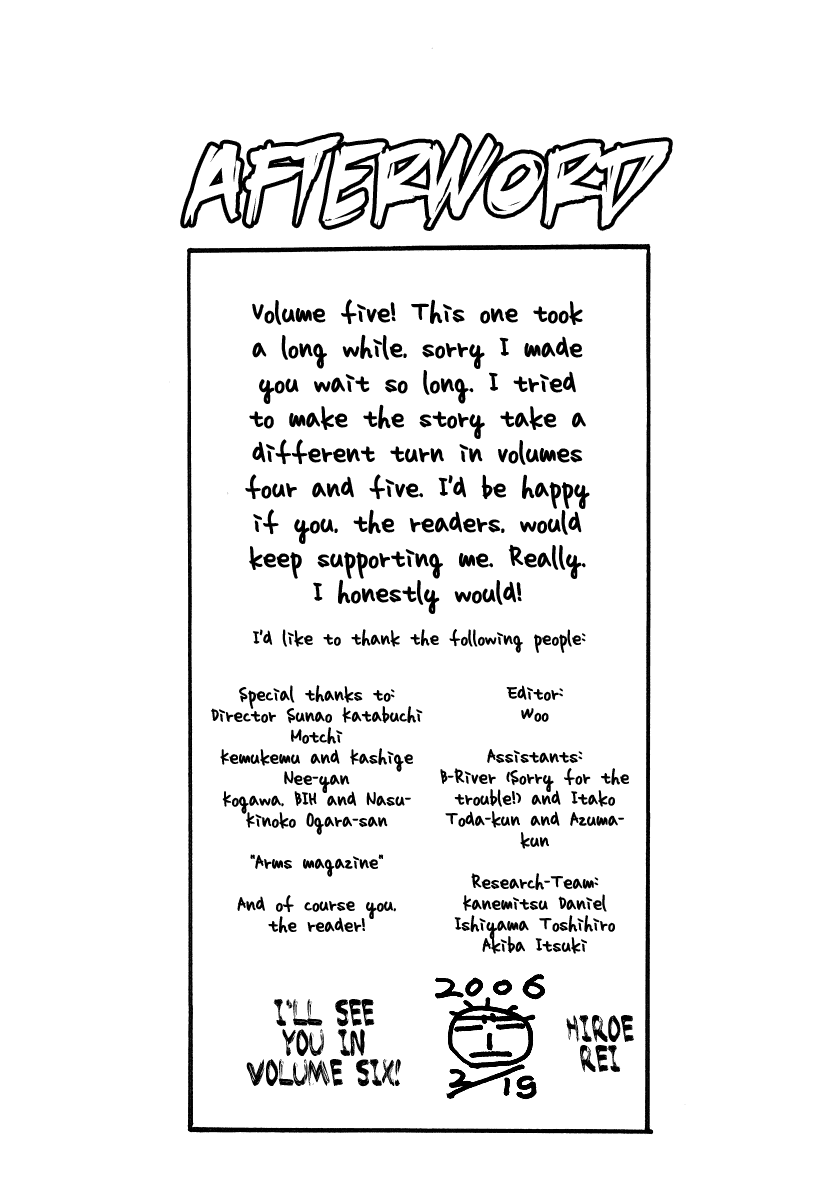 AFTERWORD
Volume five! This one took
a long while, sorry I made
you wait so long. I tried
to make the story take a
different turn in volumes
four and five. I'd be happy
if you, the readers, would
keep supporting me. Really,
I honestly would!
I'd like to thank the following people:
Special thanks to:
Director Sunao Katabuchi
Motchi
Kemukemu and Kashige
Nee-yan
Kogawa, BIH and Nasu-
Kinoko Ogara-san
"Arms magazine"
And of course you,
the reader!
Editor:
Woo
Assistants:
B-River (Sorry for the
trouble!) and Itako
Toda-kun and Azuma-
kun
Research-Team:
Kanemitsu Daniel
Ishiyama Toshihiro
Akiba Itsuki
I'LL SEE
YOU IN
VOLUME SIX!
2006
2/19
HIROE
REI